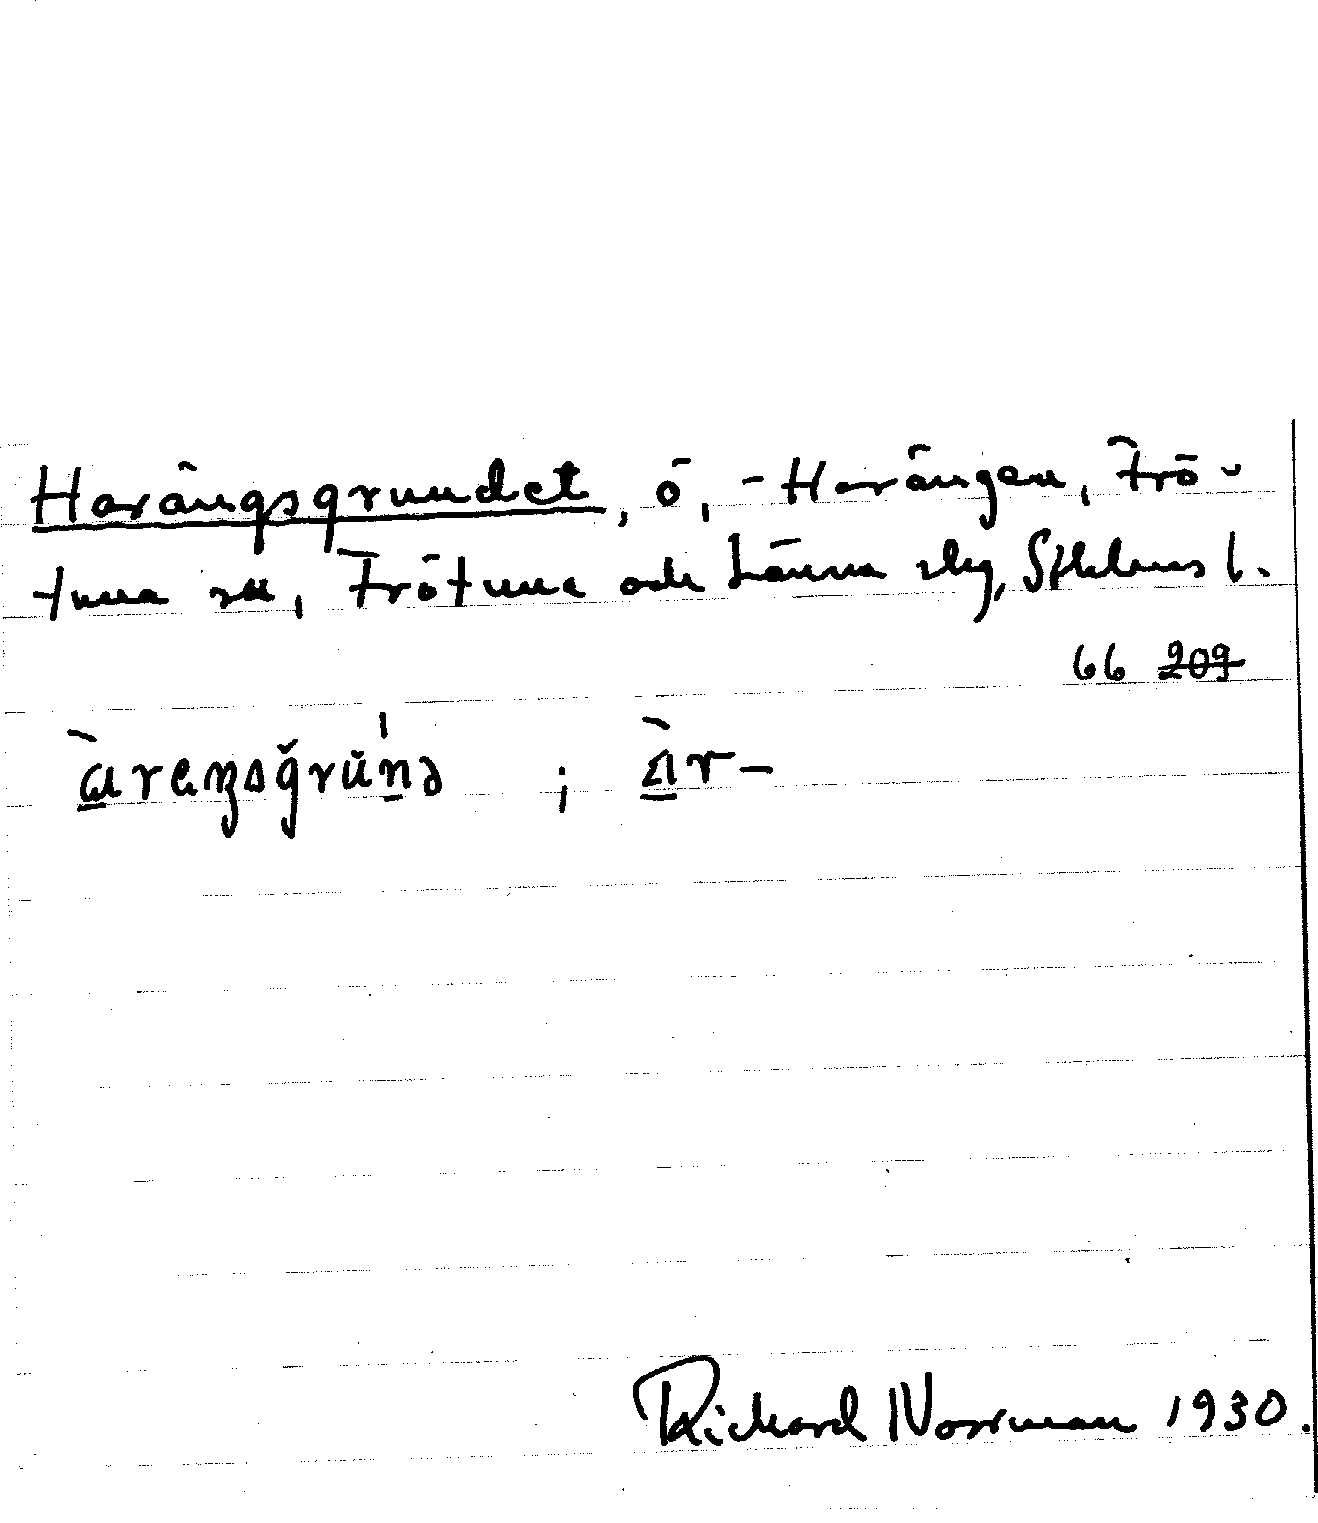 Harängsgrundet, ö, - Harängen, Frö-
tuna sn, Frötuna och Länna slg, Sthlms l.
66 209
àrensgrúnə ; àr-
Richard Norrman 1930.